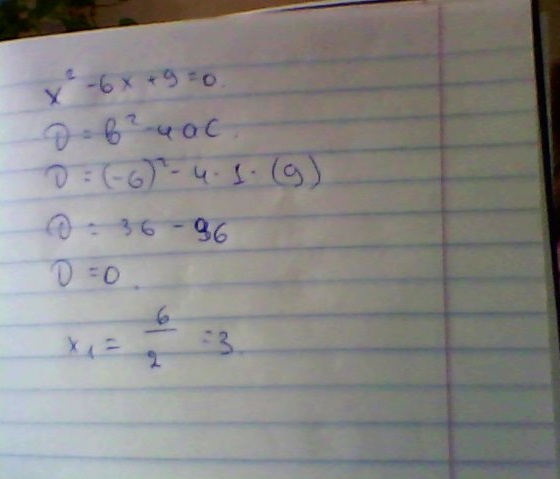 x² - 6x + 9 = 0.
D = b² - 4ac.
D = (-6)² - 4 · 1 · (9)
D = 36 - 96
D = 0.
x₁ = 6/2 = 3.